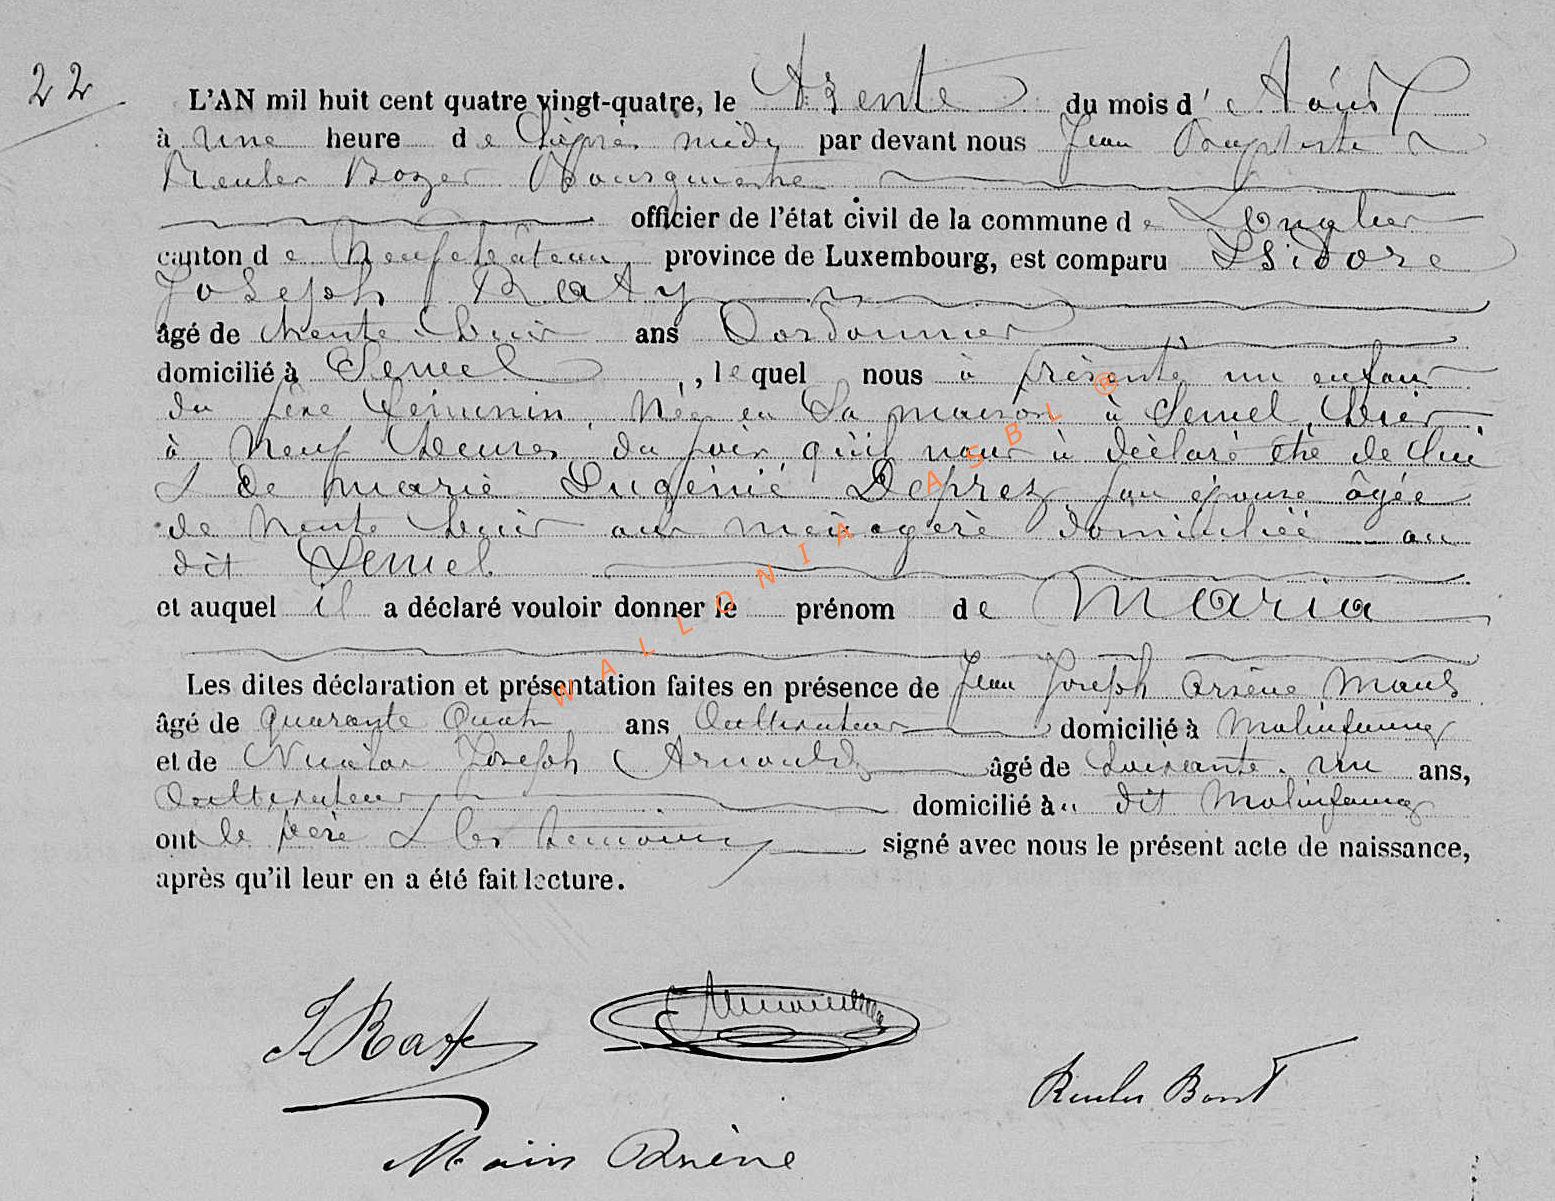 22
L'AN mil huit cent quatre vingt-quatre, le Trente du mois d'e Août
à une heure de l'après midy par devant nous Jean Baptiste
Reuler Bourgmestre
officier de l'état civil de la commune de Longlier
canton de Neufchâteau province de Luxembourg, est comparu Isidore
Joseph Raty
âgé de trente huit ans Cordonnier
domicilié à Semel, lequel nous à présenté un enfant
du sexe féminin, Née en sa maison à Semel, hier
à Neuf heures du soir qu'il nous à déclaré être de lui
& de marie Eugénie Deprez son épouse âgée
de trente huit ans ménagère domiciliée au
dit Semel
et auquel il a déclaré vouloir donner le prénom de Maria
Les dites déclaration et présentation faites en présence de Jean Joseph Arsène
âgé de quarante Quatre ans Cultivateur domicilié à Molinfaing
et de Nicolas Joseph Arnould âgé de Soixante. un ans,
Cultivateur domicilié au dit Molinfaing
ont le père & les témoins signé avec nous le présent acte de naissance,
après qu'il leur en a été fait lecture.
J Raty
Reuler
Arsène
WALLONIA ASBL ®